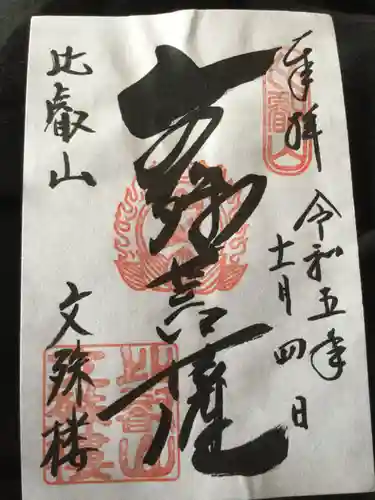 奉拝
令和五年
十一月四日
文殊菩薩
比叡山
文殊楼